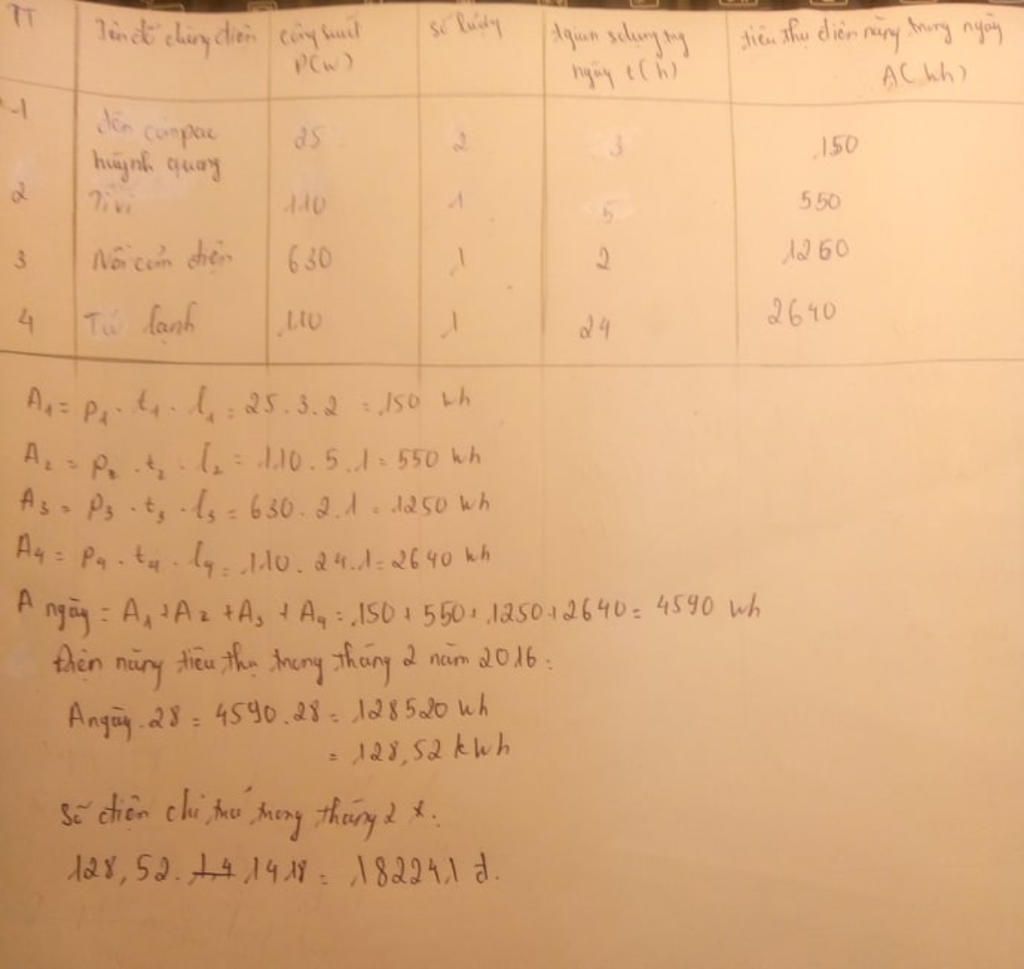 TT Tên đồ dùng điện công suất P(W) số lượng tgian sdụng trg ngày t(h) tiêu thụ điện năng trong ngày A(Wh)
1 đèn compac huỳnh quang 25 2 3 150
2 Ti vi 110 1 5 550
3 Nồi cơm điện 630 1 2 1260
4 Tủ lạnh 110 1 24 2640
A1 = P1 . t1 . l1 = 25 . 3 . 2 = 150 Wh
A2 = P2 . t2 . l2 = 110 . 5 . 1 = 550 Wh
A3 = P3 . t3 . l3 = 630 . 2 . 1 = 1250 Wh
A4 = P4 . t4 . l4 = 110 . 24 . 1 = 2640 Wh
A ngày = A1 + A2 + A3 + A4 = 150 + 550 + 1250 + 2640 = 4590 Wh
Điện năng tiêu thụ trong tháng 2 năm 2016 :
A ngày . 28 = 4590 . 28 = 128520 Wh
= 128,52 kWh
Số điện chi trả trong tháng 2 :
128,52 . 1418 = 182241 đ.